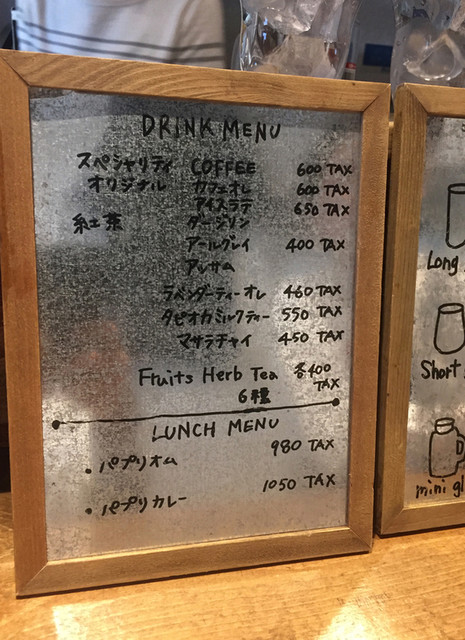 DRINK MENU
スペシャリティ COFFEE 600 TAX
オリジナル カフェオレ 600 TAX
アイスラテ 650 TAX
紅茶 ダージリン
アールグレイ 400 TAX
アッサム
ラベンダーティーオレ 460 TAX
タピオカミルクティー 550 TAX
マサラチャイ 450 TAX
Fruits Herb Tea 各400 TAX
6種
LUNCH MENU
・パプリオム 980 TAX
・パプリカレー 1050 TAX
Long
Short
mini gl